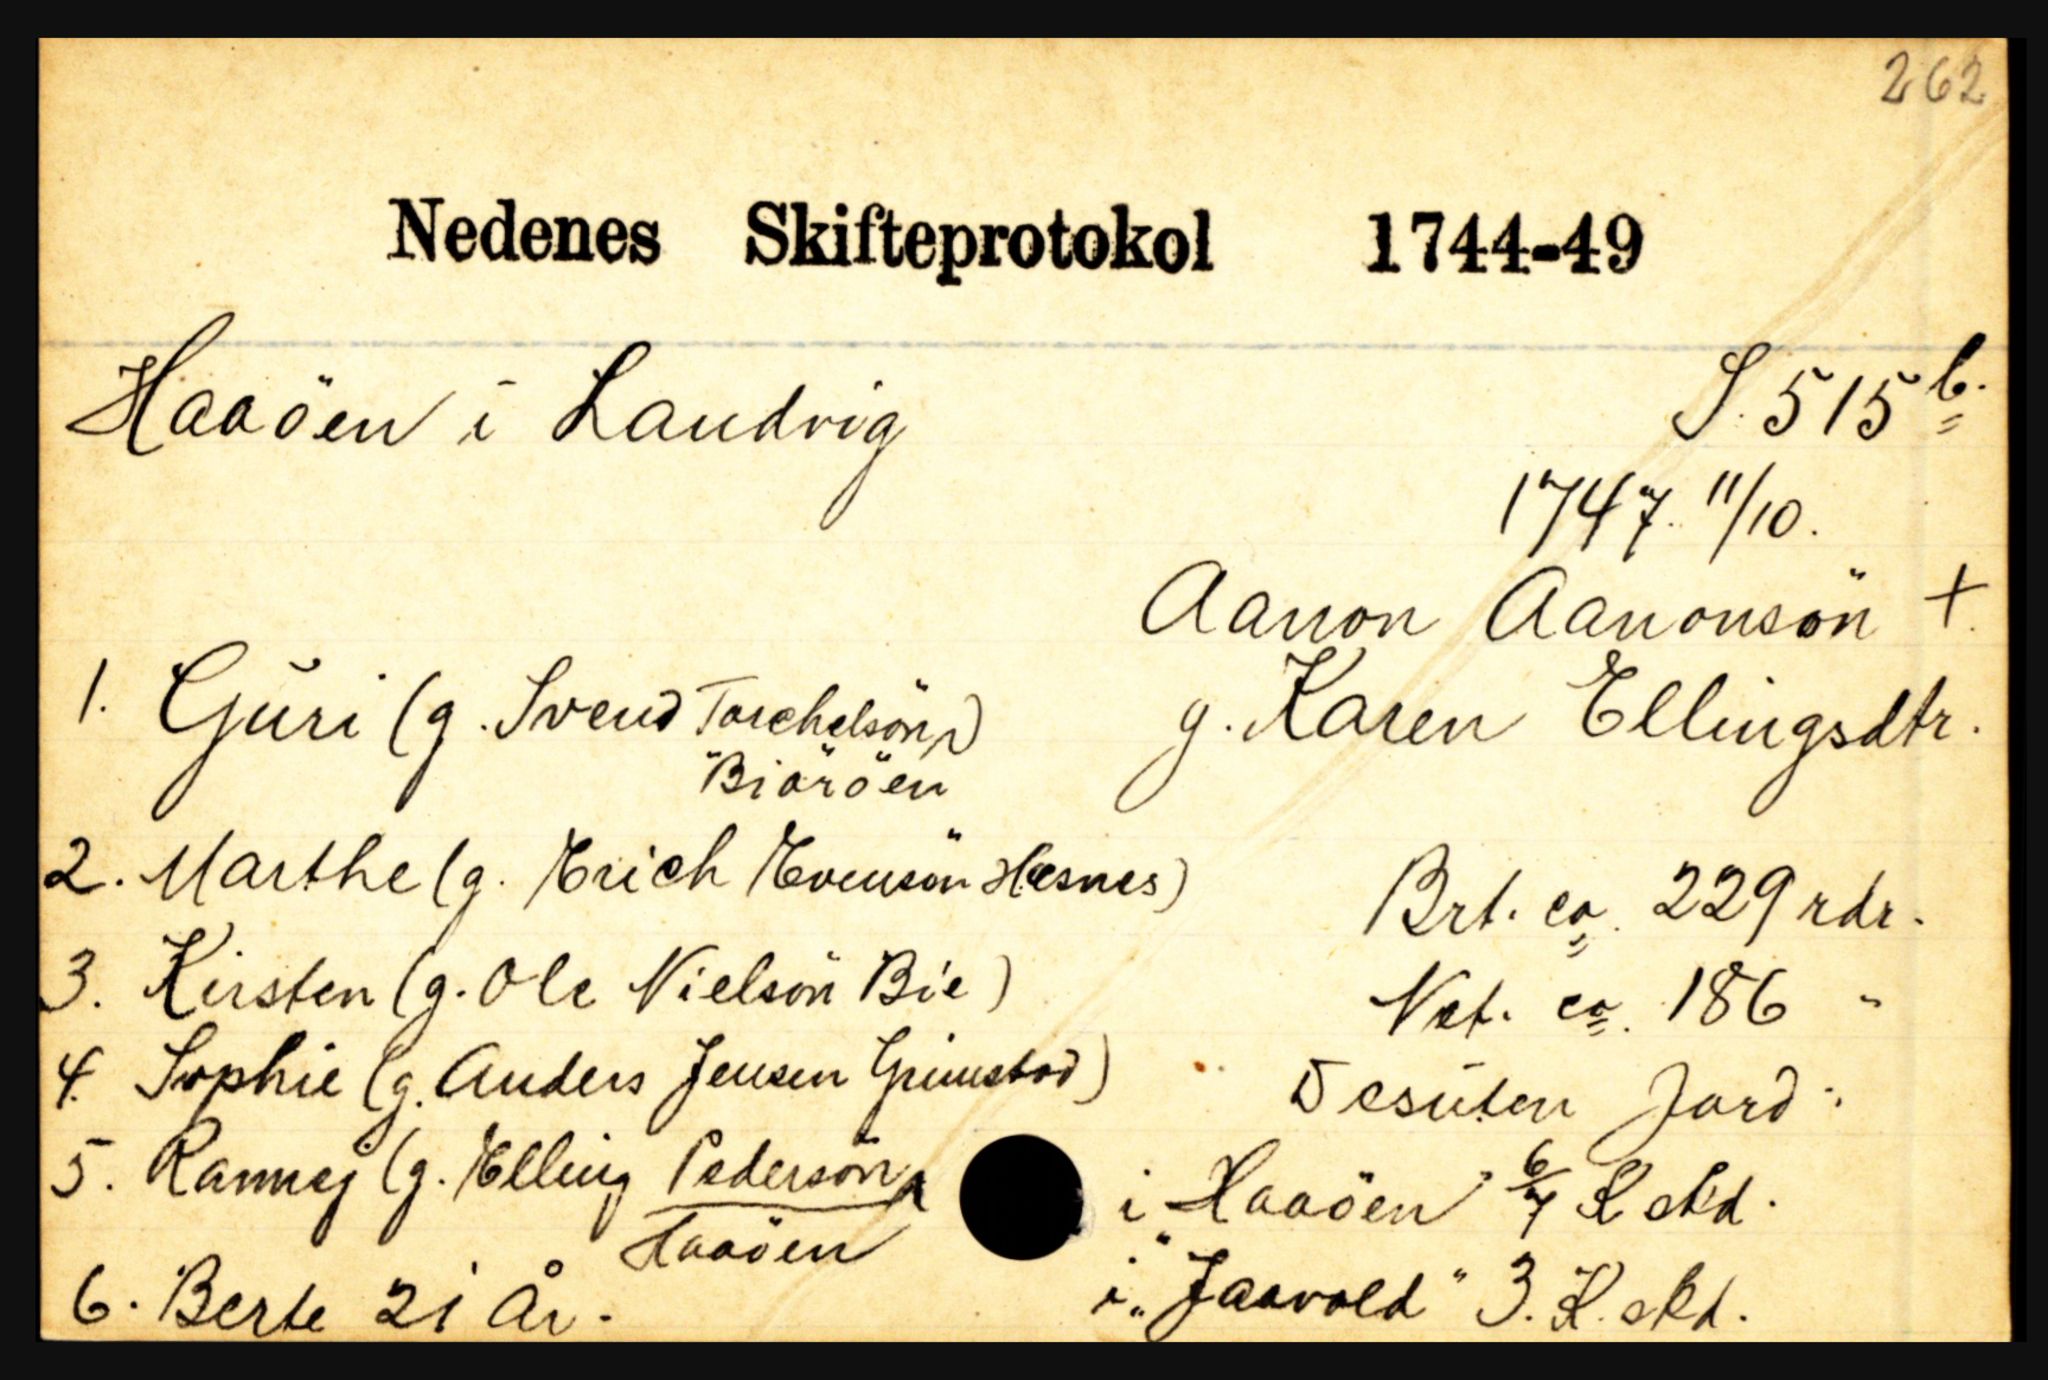 262
Nedenes Skifteprotokol 1744-49
Haaöen i Landvig
S. 515 b.
1747. 11/10.
Aanon Aanonsön +.
g. Karen Ellingsdtr.
1. Guri (g. Svend Torchelsön)
Biöröen
2. Marthe (g. Erich Evensön Hesnes)
3. Kirsten (g. Ole Nielsön Bie)
4. Sophie (g. Anders Jensen Grimstad)
5. Rannej (g. Elling Pedersön
Haaöen
6. Berte 21 år.
Brt. ca. 229 rdr.
Net. ca. 186 "
Desuten Jord:
i "Haaöen" 6/7 K skd.
i "Jaavold" 3. K. skd.